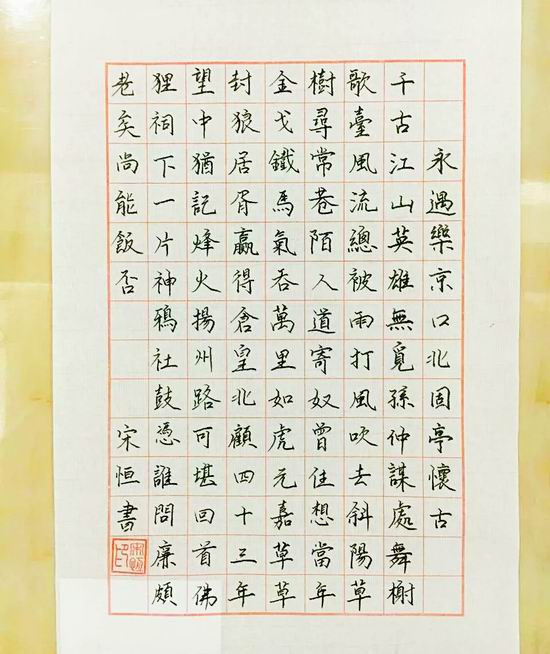 永遇樂京口北固亭懷古
千古江山英雄無覓孫仲謀處舞榭
歌臺風流總被雨打風吹去斜陽草
樹尋常巷陌人道寄奴曾住想當年
金戈鐵馬氣吞萬里如虎元嘉草草
封狼居胥贏得倉皇北顧四十三年
望中猶記烽火揚州路可堪回首佛
狸祠下一片神鴉社鼓憑誰問廉頗
老矣尚能飯否 宋恒書